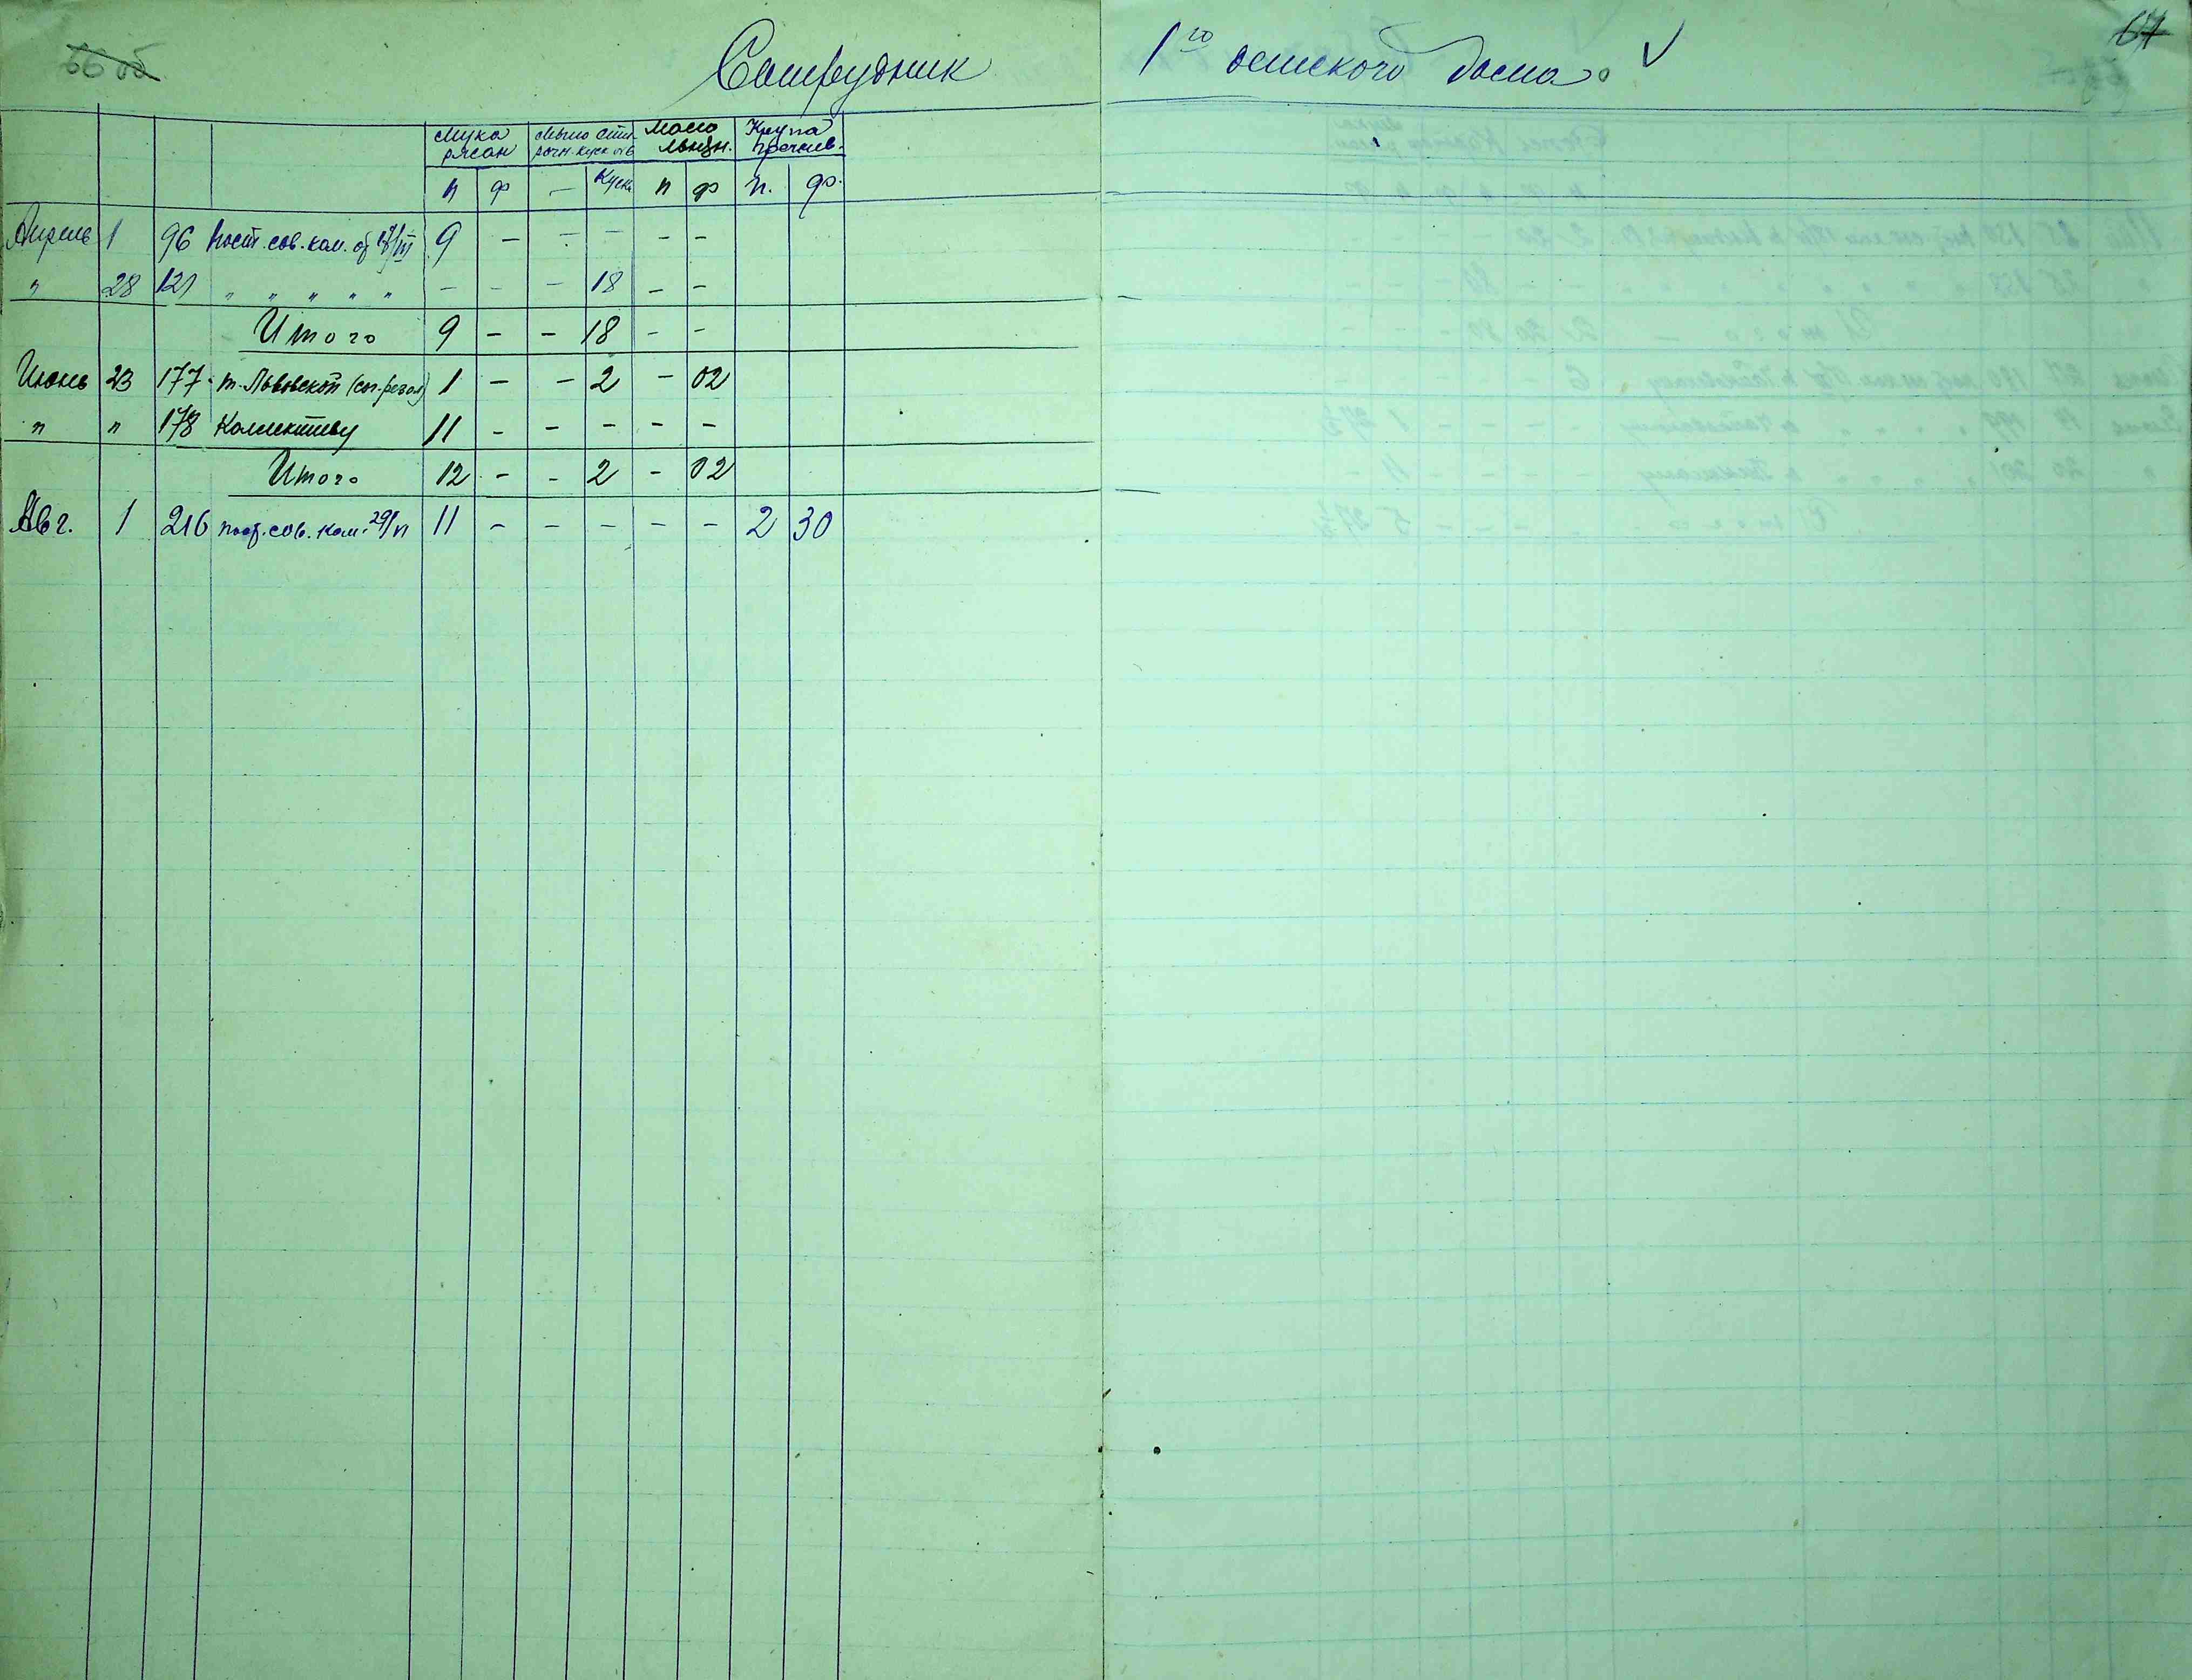 66 об
67
Сотрудник 1го детского дома.
Мука ржан Мыло стир. Масло льнян. Крупа гречнев.
п ф — куск. п ф п. ф.
Апрель 1 96 пост. сов. ком. от III 9 — — — — —
" 28 121 " " " " " — — — 18 — —
Итого 9 — — 18 — —
Июнь 23 177 т. Львовской 1 — — 2 — 02
" " 178 Коллективу 11 — — — — —
Итого 12 — — 2 — 02
Авг. 1 216 пост. сов. ком. 29/VI 11 — — — — — 2 30